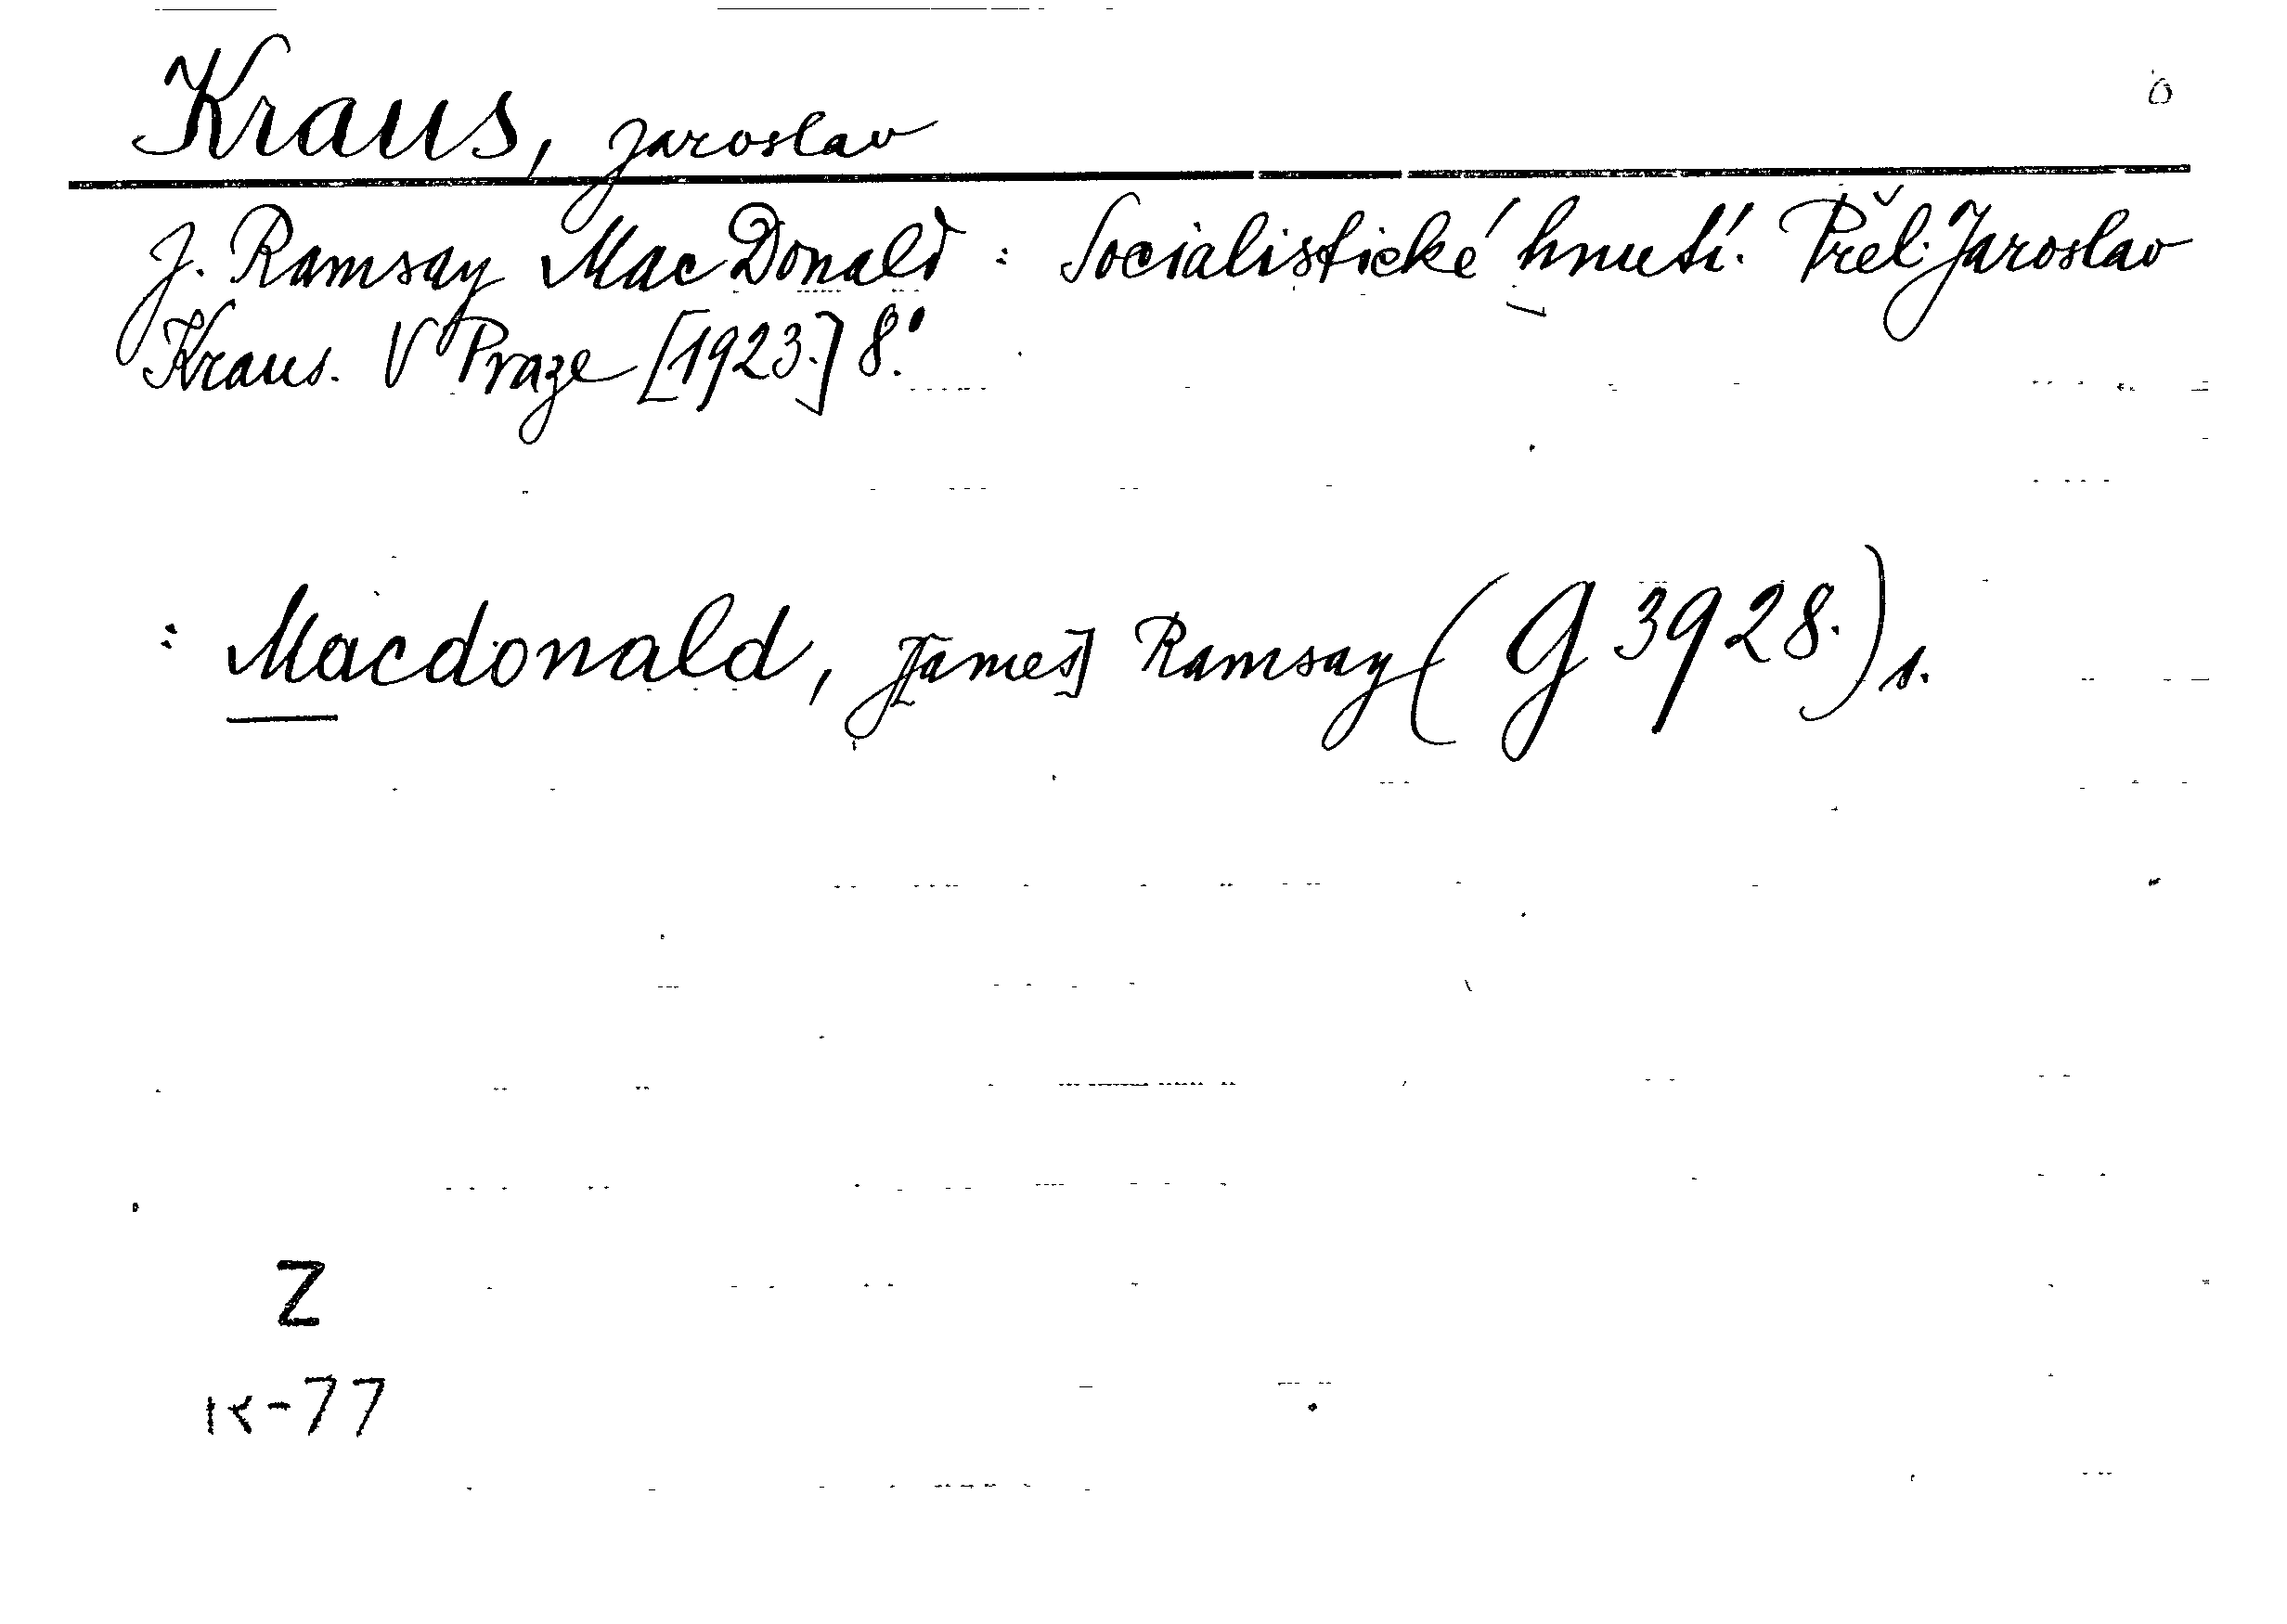 Kraus, Jaroslav
J. Ramsay MacDonald : Socialistické hnutí. Přel. Jaroslav
Kraus. V Praze [1923.] 8.°
: Macdonald, J[ames] Ramsay (G 3928.) s.
Z
K-77